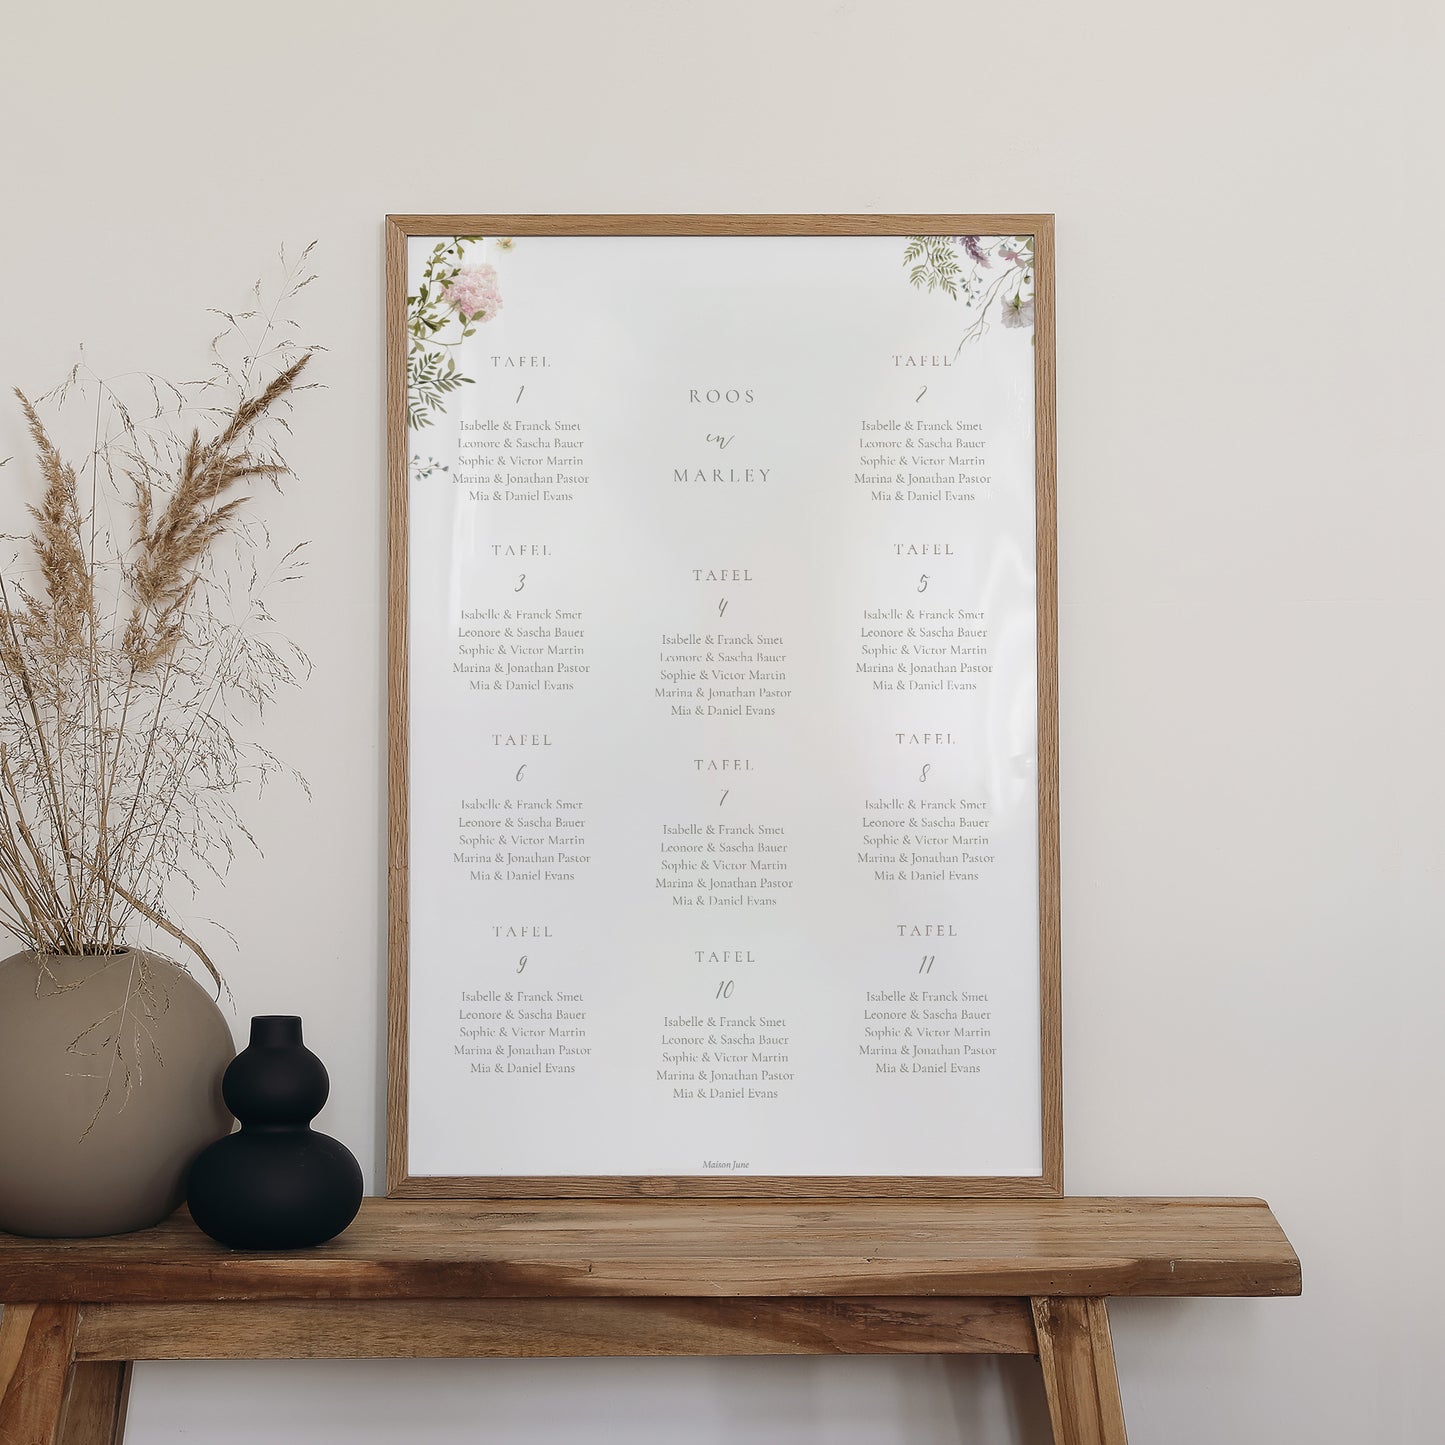 TAFEL
1
Isabelle & Franck Smet
Leonore & Sascha Bauer
Sophie & Victor Martin
Marina & Jonathan Pastor
Mia & Daniel Evans
ROOS
en
MARLEY
TAFEL
2
Isabelle & Franck Smet
Leonore & Sascha Bauer
Sophie & Victor Martin
Marina & Jonathan Pastor
Mia & Daniel Evans
TAFEL
3
Isabelle & Franck Smet
Leonore & Sascha Bauer
Sophie & Victor Martin
Marina & Jonathan Pastor
Mia & Daniel Evans
TAFEL
4
Isabelle & Franck Smet
Leonore & Sascha Bauer
Sophie & Victor Martin
Marina & Jonathan Pastor
Mia & Daniel Evans
TAFEL
5
Isabelle & Franck Smet
Leonore & Sascha Bauer
Sophie & Victor Martin
Marina & Jonathan Pastor
Mia & Daniel Evans
TAFEL
6
Isabelle & Franck Smet
Leonore & Sascha Bauer
Sophie & Victor Martin
Marina & Jonathan Pastor
Mia & Daniel Evans
TAFEL
7
Isabelle & Franck Smet
Leonore & Sascha Bauer
Sophie & Victor Martin
Marina & Jonathan Pastor
Mia & Daniel Evans
TAFEL
8
Isabelle & Franck Smet
Leonore & Sascha Bauer
Sophie & Victor Martin
Marina & Jonathan Pastor
Mia & Daniel Evans
TAFEL
9
Isabelle & Franck Smet
Leonore & Sascha Bauer
Sophie & Victor Martin
Marina & Jonathan Pastor
Mia & Daniel Evans
TAFEL
10
Isabelle & Franck Smet
Leonore & Sascha Bauer
Sophie & Victor Martin
Marina & Jonathan Pastor
Mia & Daniel Evans
TAFEL
11
Isabelle & Franck Smet
Leonore & Sascha Bauer
Sophie & Victor Martin
Marina & Jonathan Pastor
Mia & Daniel Evans
Maison June